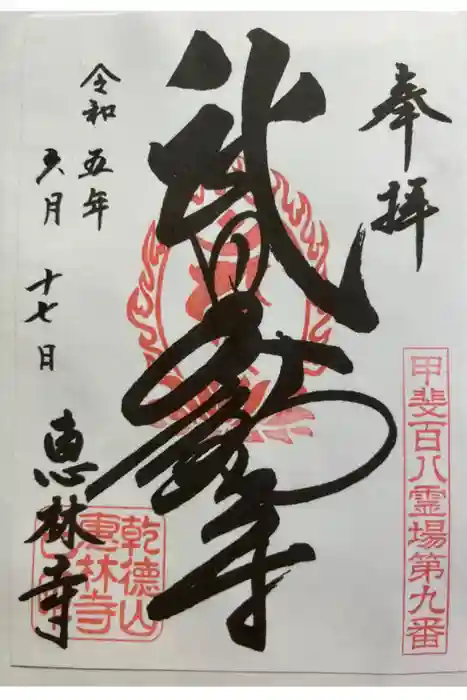 奉拝
甲斐百八霊場第九番
武田不動尊
令和五年
六月十七日
恵林寺
乾徳山
恵林寺